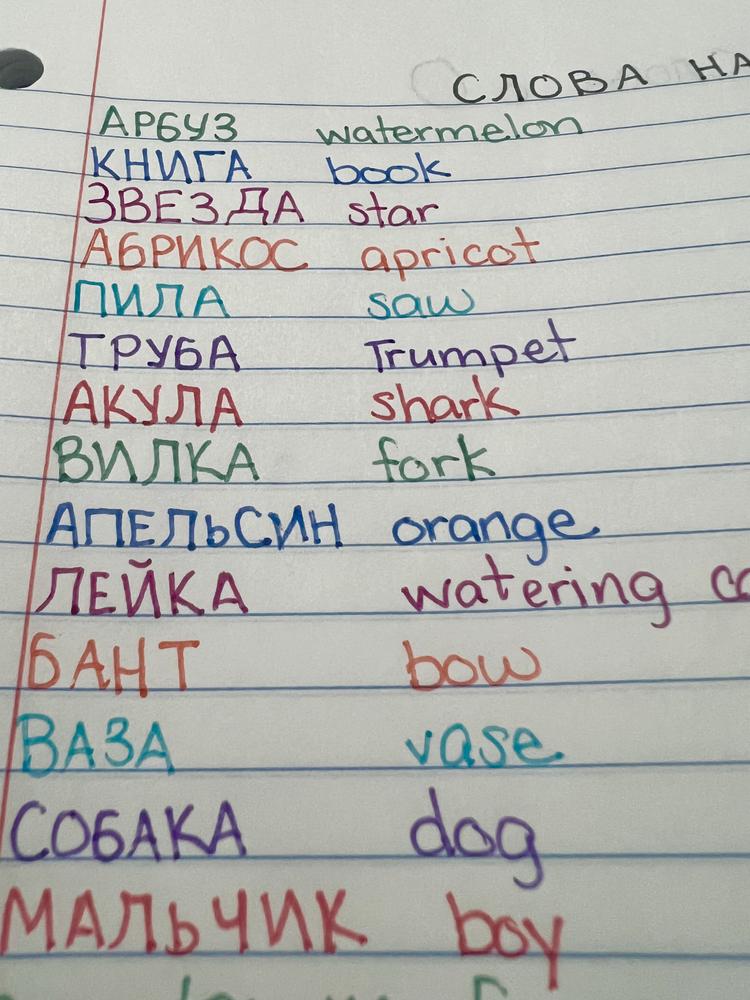 СЛОВА НА
АРБУЗ watermelon
КНИГА book
ЗВЕЗДА star
АБРИКОС apricot
ПИЛА saw
ТРУБА Trumpet
АКУЛА shark
ВИЛКА fork
АПЕЛЬСИН orange
ЛЕЙКА watering
БАНТ bow
ВАЗА vase
СОБАКА dog
МАЛЬЧИК boy